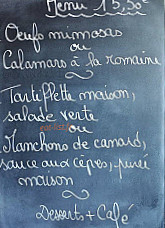 Menu 15,50€
Oeufs mimosas
ou
Calamars à la romaine
Tartiflette maison,
salade verte
ou
Manchons de canard,
sauce aux cèpes, purée
maison
Desserts + Café